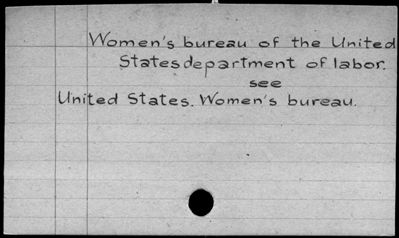 Women's bureau of the United
States department of labor.
see
United States. Women's bureau.